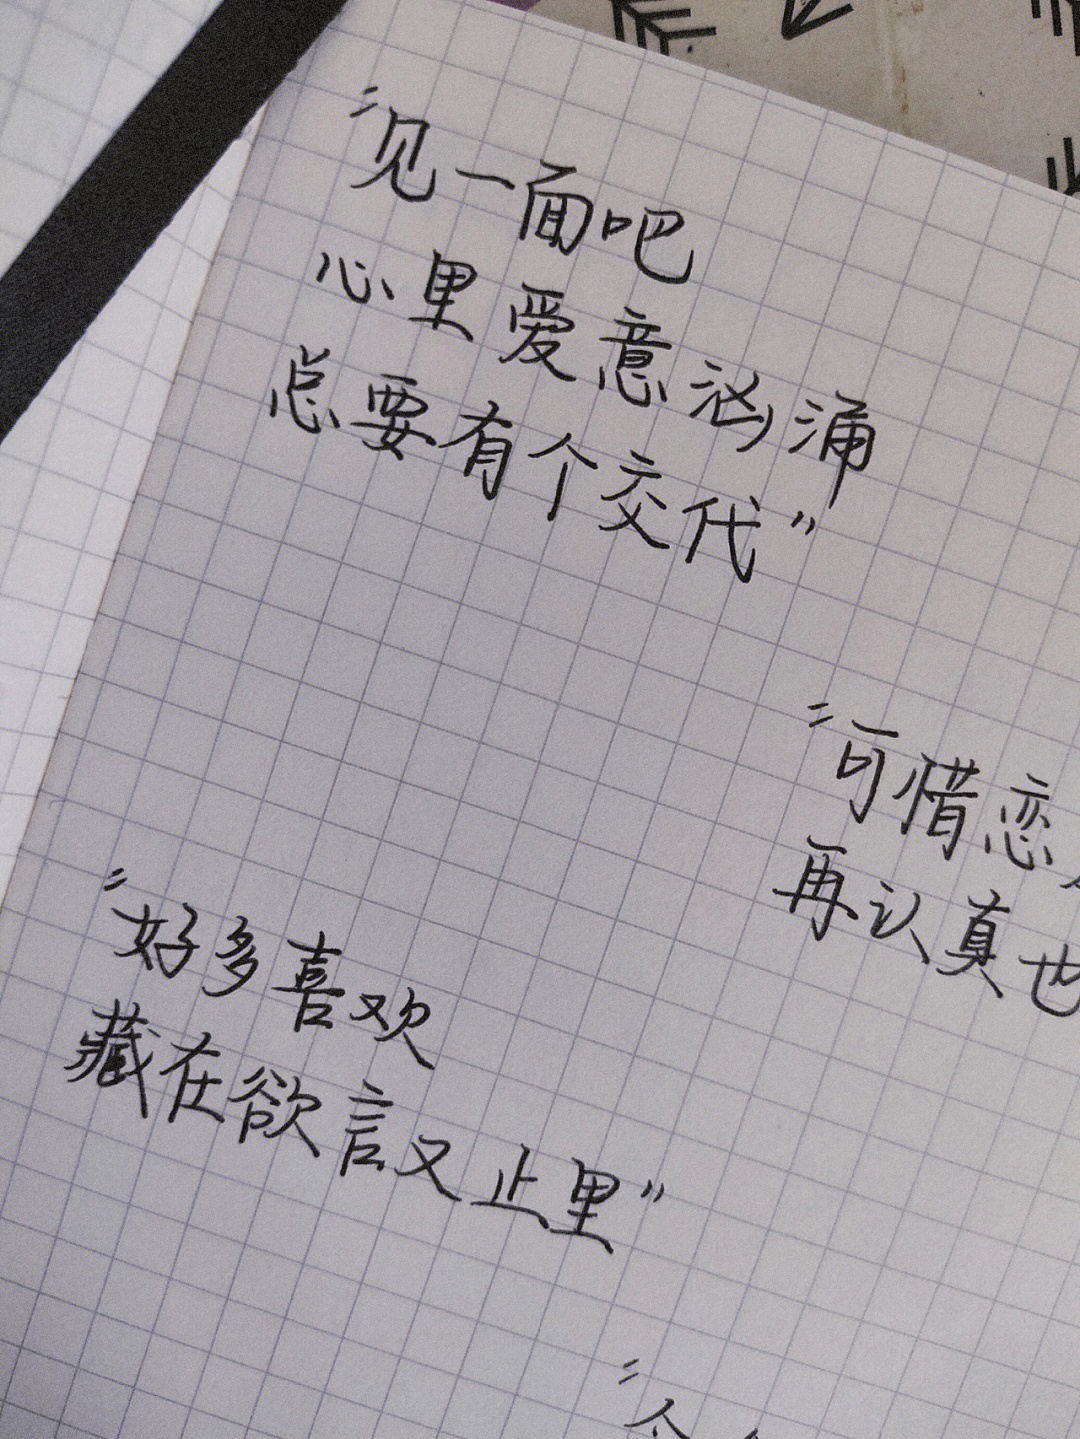 "见一面吧
心里爱意汹涌
总要有个交代"
"可惜恋
再认真也
"好多喜欢
藏在欲言又止里"